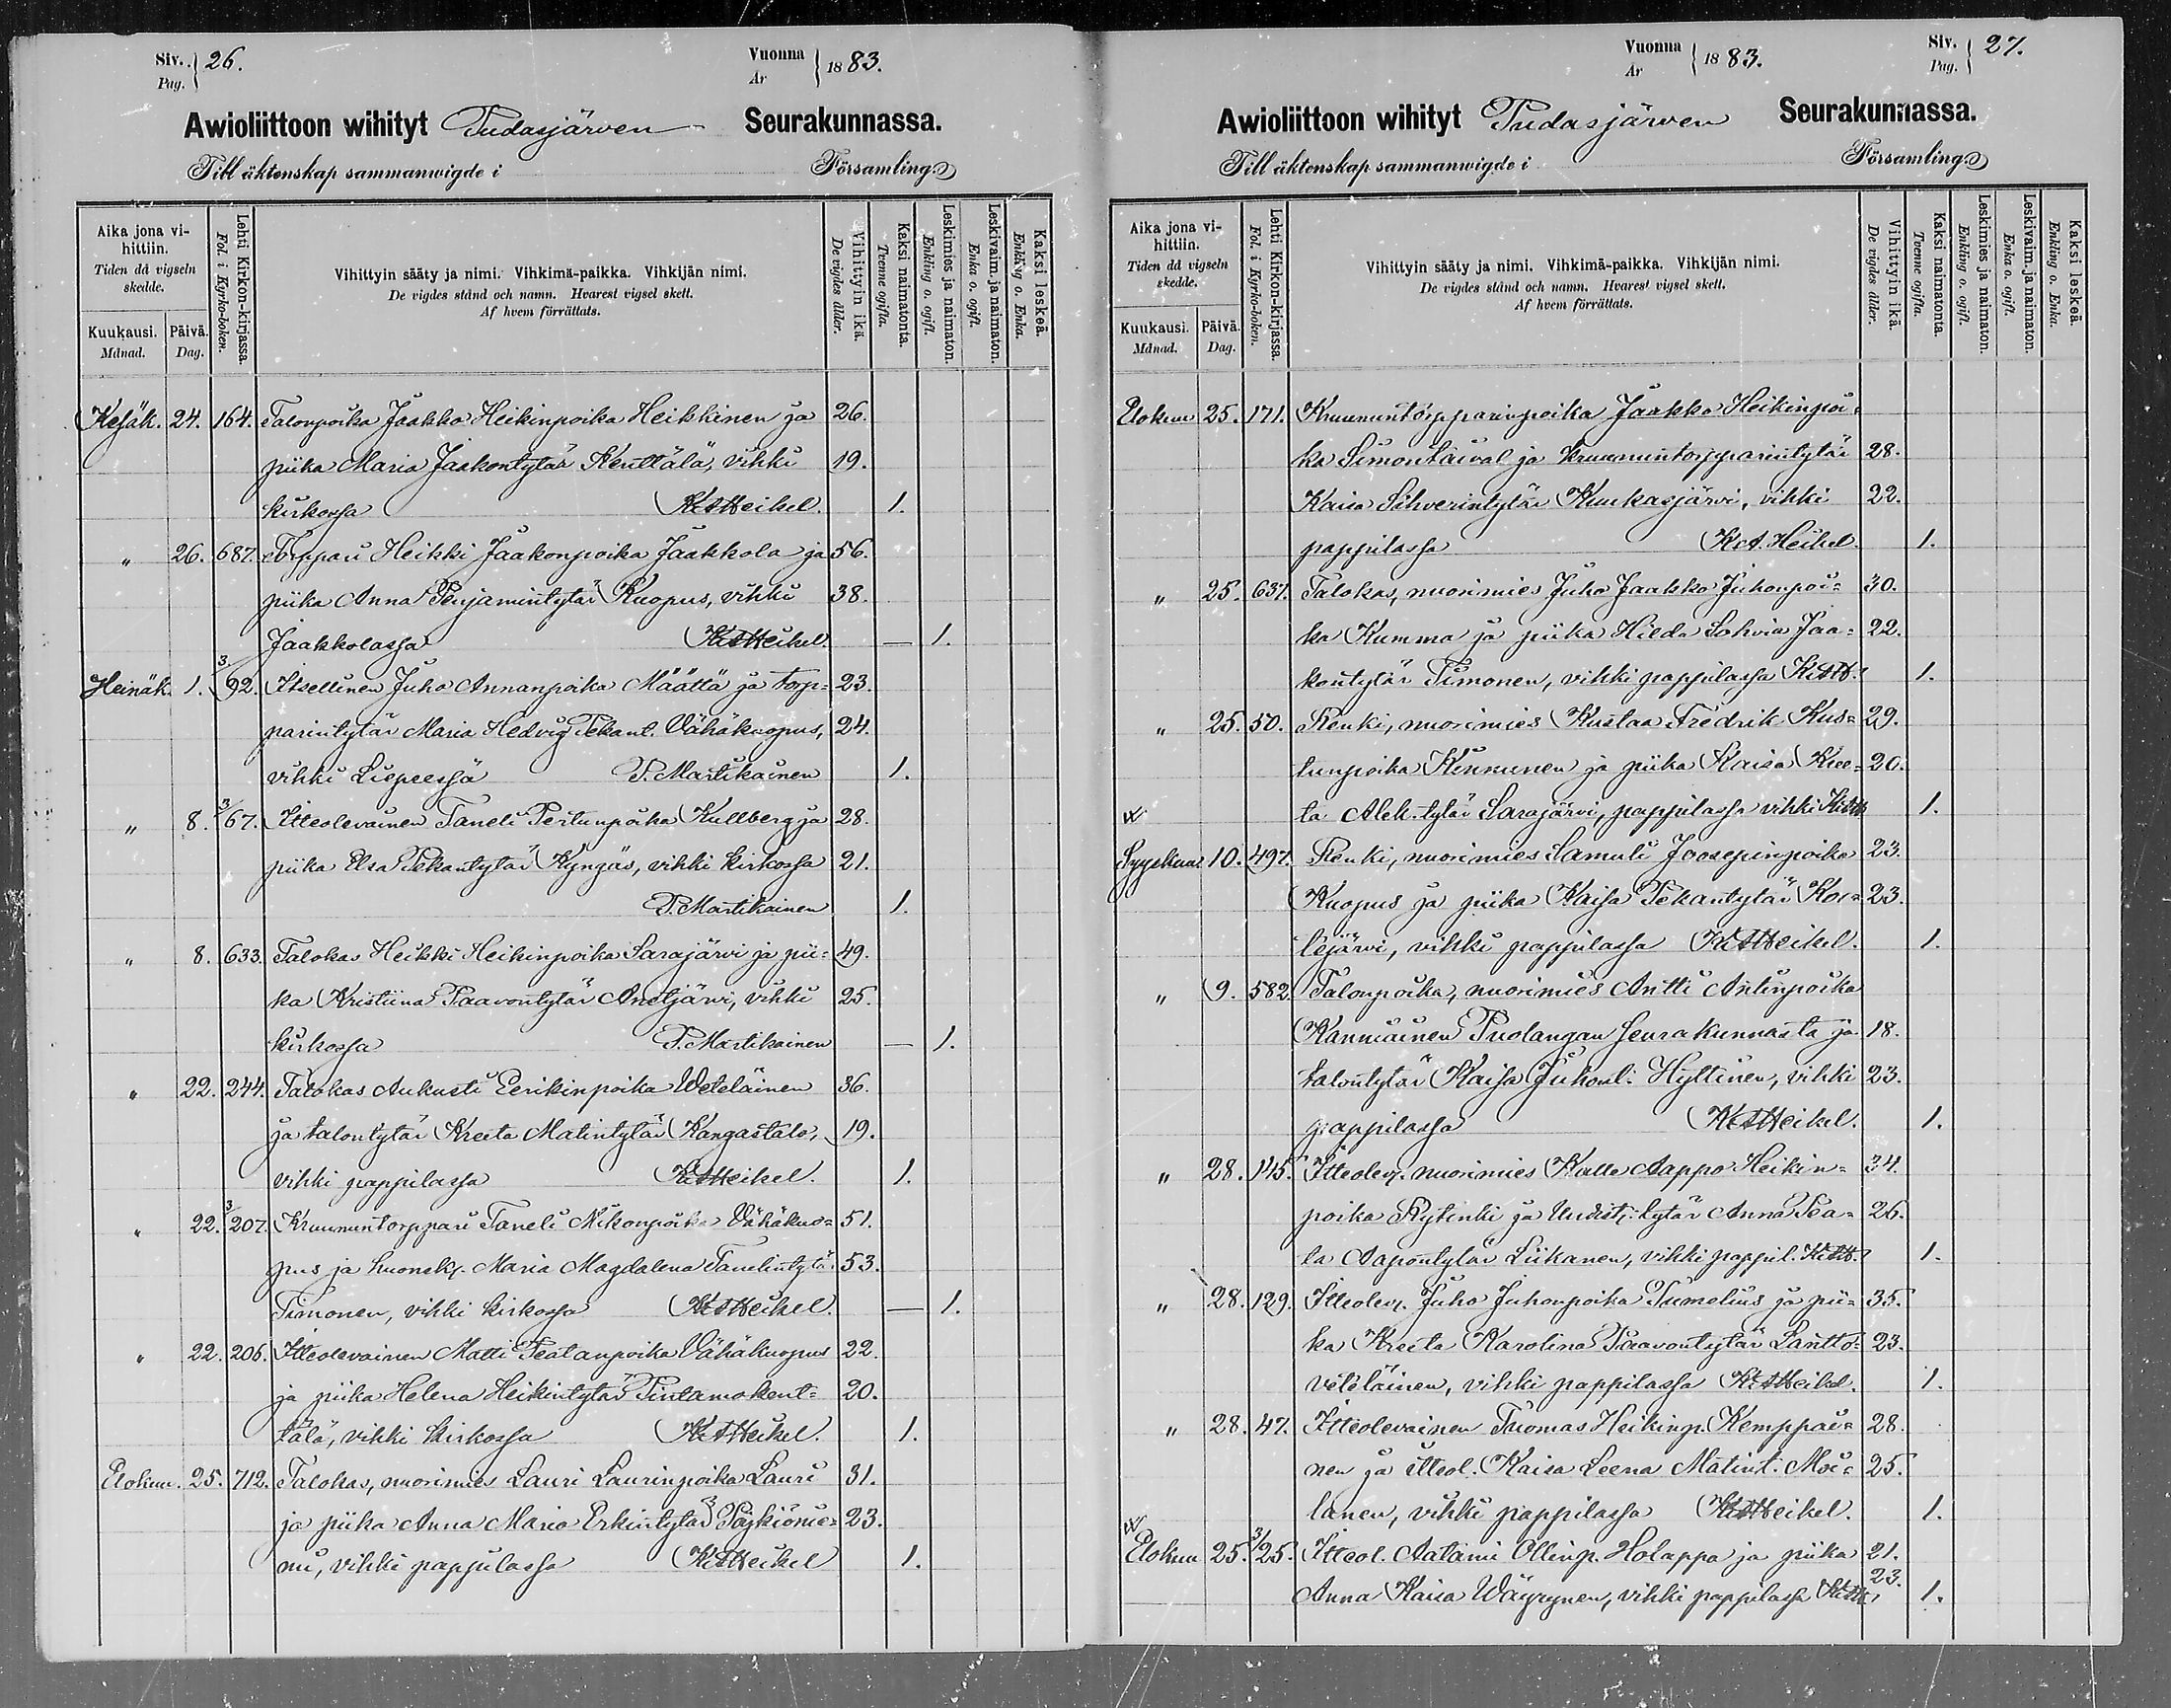 Siv. Pag. 26.
Vuonna År 1883.
Awioliittoon wihityt Pudasjärven Seurakunnassa.
Till äktenskap sammanwigde i Församling
Aika jona vi-
hittiin.
Tiden då vigseln
skedde.
Kuukausi.
Månad.
Päivä.
Dag.
Lehti Kirkon-kirjassa.
Fol. i Kyrko-boken.
Vihittyin sääty ja nimi. Vihkimä-paikka. Vihkijän nimi.
De vigdes stånd och namn. Hvarest vigsel skett.
Af hvem förrättats.
Vihittyin ikä.
De vigdes ålder.
Kaksi naimatonta.
Tvenne ogifta.
Leskimies ja naimaton.
Enkling o. ogift.
Leskivaim. ja naimaton.
Enka o. ogift.
Kaksi leskeä.
Enkling o. Enka.
Kesäk. 24. 164. Talonpoika Jaakko Heikinpoika Heikkinen ja 26.
piika Maria Jaakontytär Kenttälä, vihki 19.
kirkossa K. A. Heikel. 1.
" 26. 687. Torppari Heikki Jaakonpoika Jaakkola ja 56.
piika Anna Penjamintytär Kuopus, vihki 38.
Jaakkolassa K. A. Heikel. — 1.
Heinäk. 1. 3/92. Itsellinen Juho Annanpoika Määttä ja torp= 23.
parintytär Maria Hedvig Pekant. Vähäkuopus, 24.
vihki Liepeessä P. Martikainen 1.
" 8. 3/67. Itteolevainen Taneli Pertunpoika Kullberg ja 28.
piika Elsa Pekantytär Kyngäs, vihki kirkossa 21.
P. Martikainen 1.
" 8. 633. Talokas Heikki Heikinpoika Sarajärvi ja pii= 49.
ka Kristiina Paavontytär Anetjärvi, vihki 25.
kirkossa P. Martikainen — 1.
" 22. 244. Talokas Aukusti Eerikinpoika Weteläinen 36.
ja talontytär Kreeta Matintytär Kangastalo, 19.
vihki pappilassa K. A. Heikel. 1.
" 22. 3/207. Kruununtorppari Taneli Nikonpoika Vähäkuo= 51.
pus ja huonek. Maria Magdalena Tanelintytär 53.
Timonen, vihki kirkossa K. A. Heikel. — 1.
" 22. 206. Itteolevainen Matti Pealanpoika Vähäkuopus 22.
ja piika Helena Heikintytär Pintamokent= 20.
tälä, vihki kirkossa K. A. Heikel. 1.
Elokuu. 25. 712. Talokas, nuorimies Lauri Laurinpoika Lauri 31.
ja piika Anna Maria Erkintytär Päykiönie= 23.
mi, vihki pappilassa K. A. Heikel 1.
Siv. Pag. 27.
Vuonna År 1883.
Awioliittoon wihityt Pudasjärven Seurakunnassa.
Till äktenskap sammanwigde i Församling
Aika jona vi-
hittiin.
Tiden då vigseln
skedde.
Kuukausi.
Månad.
Päivä.
Dag.
Lehti Kirkon-kirjassa.
Fol. i Kyrko-boken.
Vihittyin sääty ja nimi. Vihkimä-paikka. Vihkijän nimi.
De vigdes stånd och namn. Hvarest vigsel skett.
Af hvem förrättats.
Vihittyin ikä.
De vigdes ålder.
Kaksi naimatonta.
Tvenne ogifta.
Leskimies ja naimaton.
Enkling o. ogift.
Leskivaim. ja naimaton.
Enka o. ogift.
Kaksi leskeä.
Enkling o. Enka.
Elokuu 25. 171. Kruununtorpparinpoika Jaakko Heikinpoi=
ka Simontaival ja kruununtorpparintytär 28.
Kaisa Sihverintytär Kuukasjärvi, vihki 22.
pappilassa K. A. Heikel. 1.
" 25. 637. Talokas, nuorimies Juho Jaakko Juhonpoi= 30.
ka Kumma ja piika Hilda Sohvia Jaa= 22.
kontytär Timonen, vihki pappilassa K. A. H. 1.
" 25. 50. Renki, nuorimies Kustaa Fredrik Kus= 29.
tunpoika Kinnunen ja piika Kaisa Kree= 20.
ta Alek. tytär Sarajärvi, pappilassa vihki K. A. H. 1.
Syyskuu 10. 497. Renki, nuorimies Samuli Joosepinpoika 23.
Kuopus ja piika Kaisa Pekantytär Kol= 23.
lejärvi, vihki pappilassa K. A. Heikel. 1.
" 9. 582. Talonpoika, nuorimies Antti Antinpoika
Kanniainen Puolangan seurakunnasta ja 18.
talontytär Kaisa Juhont. Hyttinen, vihki 23.
pappilassa K. A. Heikel. 1.
" 28. 145. Itteolev. nuorimies Kalle Aappo Heikin= 34.
poika Rytinki ja Uudist. tytär Anna Pea= 26.
ta Aapontytär Liikanen, vihki pappil. K. A. H. 1.
" 28. 129. Itteolev. Juho Juhonpoika Tumelius ja pii= 35.
ka Kreeta Karolina Paavontytär Lantto= 23.
veteläinen, vihki pappilassa K. A. Heikel. 1.
" 28. 47. Itteolevainen Tuomas Heikinp. Kemppai= 28.
nen ja itteol. Kaisa Leena Matint. Moi= 25.
lanen, vihki pappilassa K. A. Heikel. 1.
Elokuu 25. 3/25. Itteol. Aatami Ollinp. Holappa ja piika 21.
Anna Kaisa Wäyrynen, vihki pappilassa K. A. H. 23. 1.